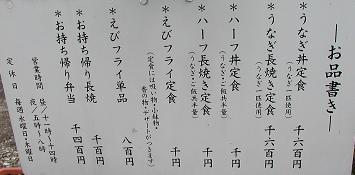 ―お品書き―
＊うなぎ丼定食　千六百円
（うなぎ一匹使用）
＊うなぎ長焼き定食　千六百円
（うなぎ一匹使用）
＊ハーフ丼定食　千円
（うなぎ・ご飯共半量）
＊ハーフ長焼き定食　千円
（うなぎ・ご飯共半量）
＊えびフライ定食　千円
（定食には吸い物・小鉢物・
香の物・デザートがつきます）
＊えびフライ単品　八百円
＊お持ち帰り長焼　千百円
＊お持ち帰り弁当　千四百円
営業時間　昼／十一時～十四時
夜／五時～八時
定休日　毎週水曜日・木曜日